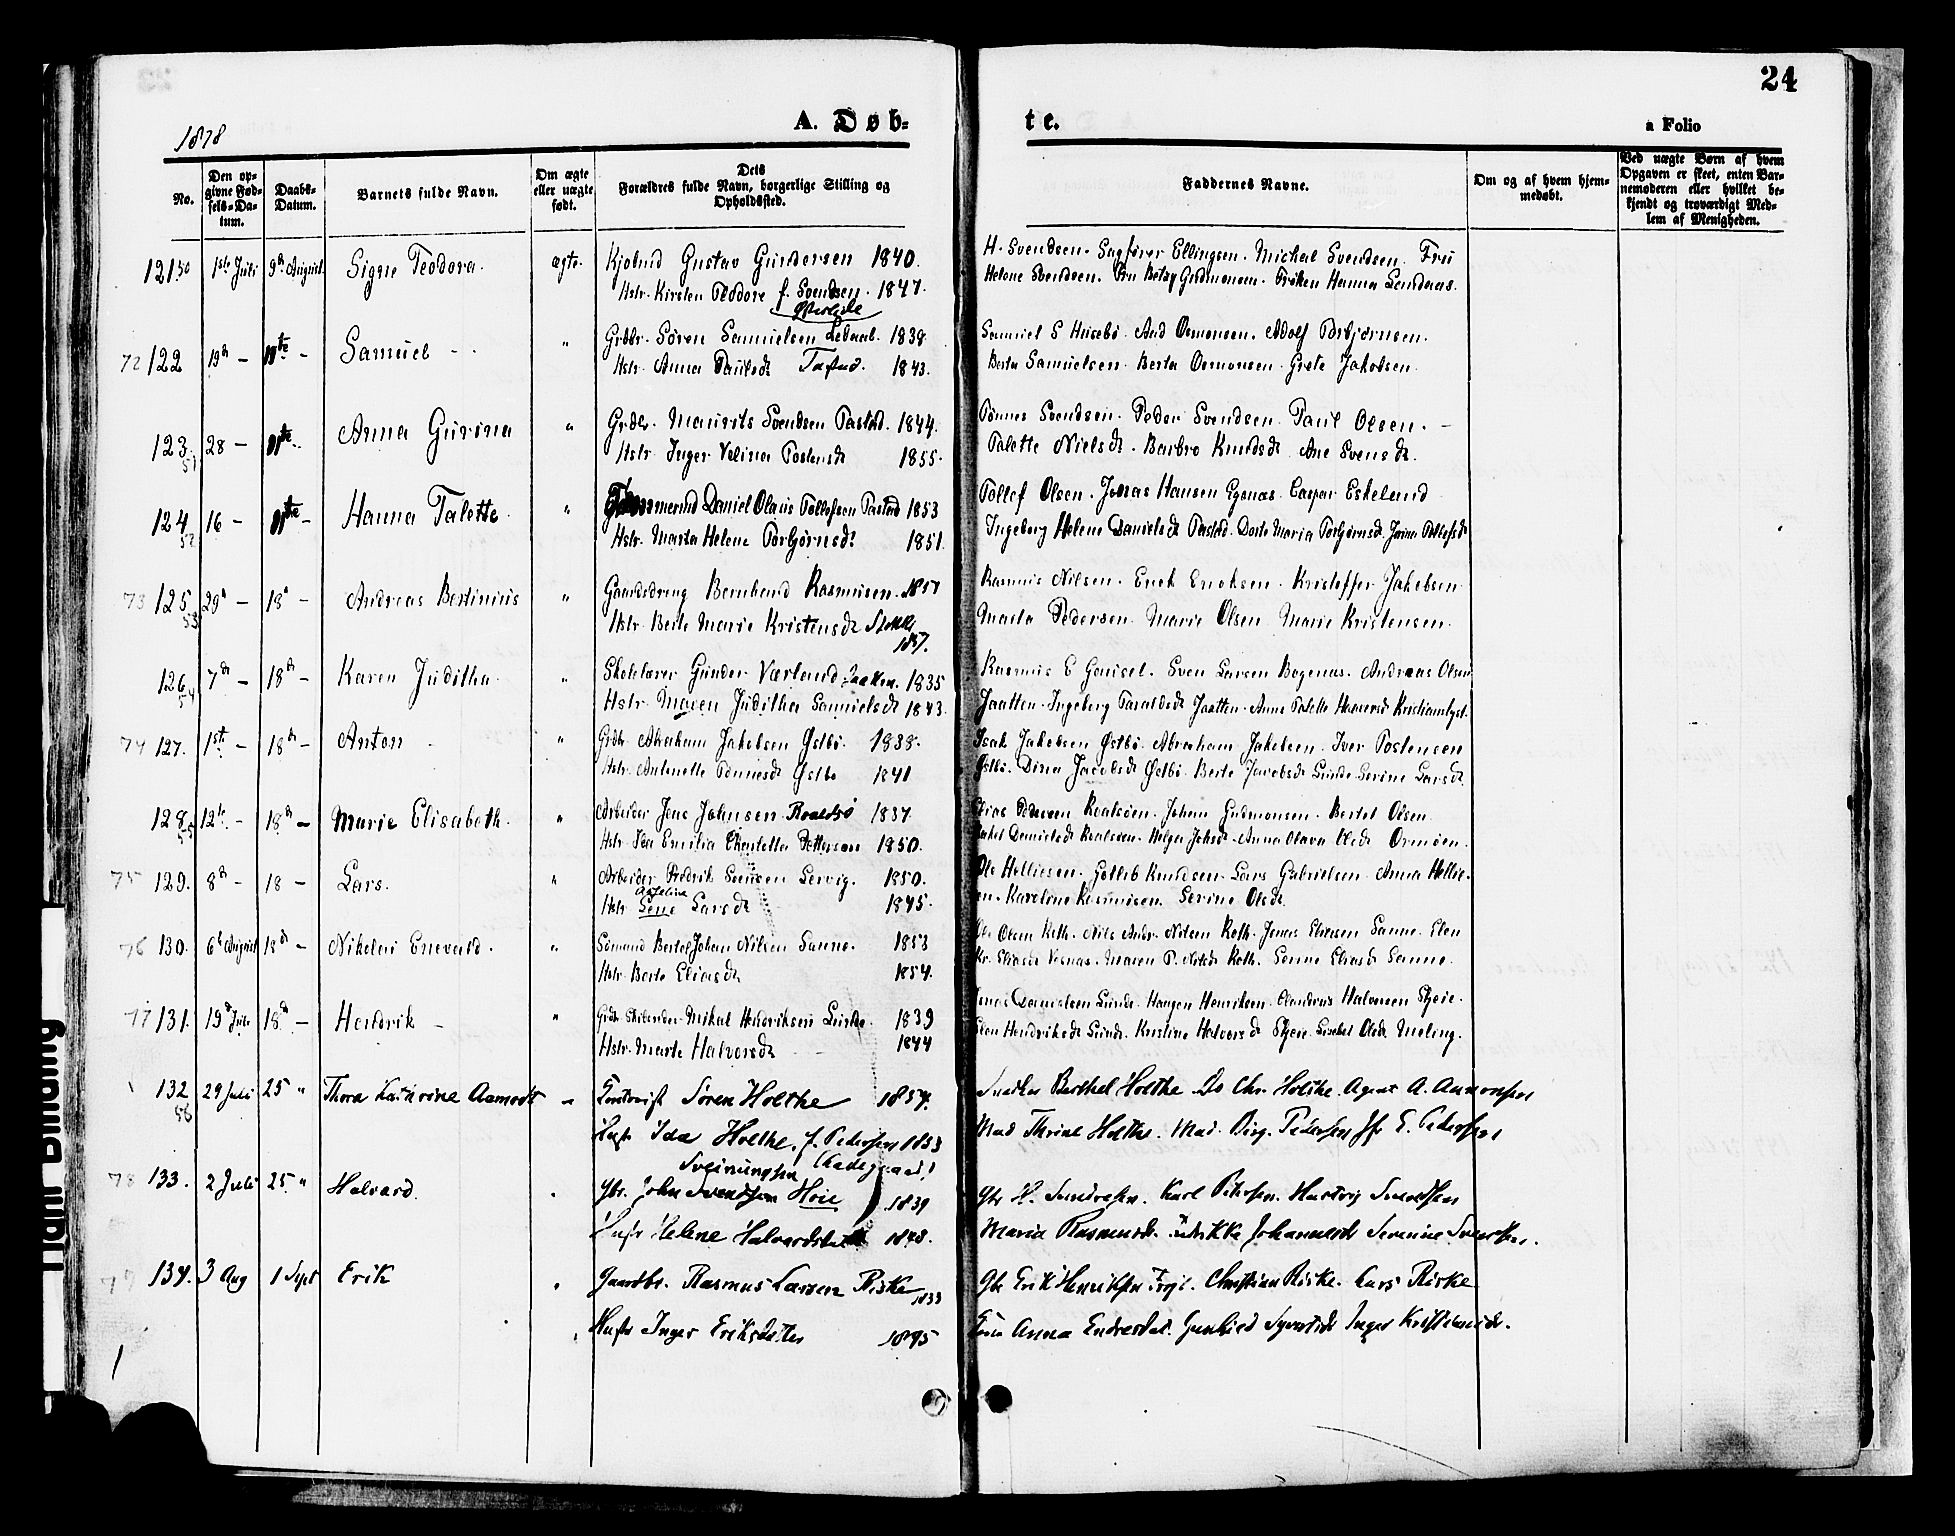 24
1878
A. Døb-
te.
a Folio
No.
Den op-
givne Fød-
sels-Da-
tum.
Daabs-
Datum.
Barnets fulde Navn.
Om ægte
eller uægte
født.
Dets
Forældres fulde Navn, borgerlige Stilling og
Opholdssted.
Faddernes Navne.
Om og af hvem hjem-
medøbt.
Ved uægte Børn af hvem
Opgaven er skeet, enten Bar-
nemoderen eller hvilket be-
kjendt og troværdigt Med-
lem af Menigheden.
121 50 1ste Juli 9de August Signe Teodora. ægte. Gustav Gundersen 1840.
Hstr. Kirsten Teodore f. Svendsen. 1847.
H. Svendsen. Sagfører Ellingsen. Michal Svendsen. Fru
Helene Svendsen. Fru Betsy Gudmonsen. Frøken Hanna
72 122 19de — — Samuel — " Grdbr. Søren Samuelsen 1838
Hstr. Anna Paulsdt 1843.
Samuel S Husebø. And Osmonsen. Adolf Torbjørnsen.
Berta Samuelsen. Berta Osmonsen. Grete Jakobsen.
123 51 28 — Anna Gurina " Grdbr. Maurits Svendsen Tastad. 1844.
Hstr. Inger Velina Tostensdt 1855.
Tønnes Svendsen. Peder Svendsen. Paul Olsen. —
Talette Nielsdt. Barbro Knudsdt. Ane Svensdt.
124 52 16 — — Hanna Talette. " Daniel Olaus Tollefsen Tastad 1853
Hstr. Marta Helene Torbjørnsdt 1851.
Tollef Olsen. Jonas Hansen Egenæs. Caspar Eskeland
Ingeborg Helene Danielsdt Tastad. Dorte Maria Torbjørnsdt. Tollefsdt
73 125 53 29de — 18de — Andreas Bertinius " Gaardsdreng Bernhard Rasmusen. 1857
Hstr. Berte Marie Kristensdt
1857.
Rasmus Nilsen. Enok Enoksen. Kristoffer Jakobsen
Marta Pedersen. Marie Olsen. Marie Kristensen.
126 54 7de — 18de — Karen Juditha. " Skolelærer Gunder Værland Jaatten. 1835
Hstr. Maren Juditha Samuelsdt 1843.
Rasmus E Gousel. Sven Larsen Bogenæs. Andreas Olsen
Jaatten. Ingeborg Taraldsdt Jaatten. Anne Talette Kristianslyst.
74 127. 1ste — 18de — Anton " Grdbr. Abraham Jakobsen Østbø. 1838.
Hstr. Antonette Tønnesdt Østbø 1841
Isak Jakobsen Østbø. Abraham Jakobsen. Iver Tostensen
Østbø. Dina Jacobsdt Østbø. Berte Jacobsdt Sunde. Serine Larsdt.
128 55 12te — 18de — Marie Elisabeth. " Arbeider Jens Johnsen Roaldsø 1837
Hstr. Ida Emilia Petterson 1850.
Pedersen Roalsøen. Johan Gudmonsen. Bertel Olsen
Danielsdt Roalsøen. Helga Anna Olava Olsdt Ormøen.
75 129. 8de — 18 — Lars. " Arbeider Fredrik Svensen Lervig. 1850.
Hstr. Lene Larsdt 1845.
Ole Helliesen. Gotlib Knudsen. Lars Gabrielsen. Anna Hellie-
sen. Karoline Rasmusen. Serine Olsdt.
76 130. 6te August 18de — Nikolai Enevald. " Sømand Bertel Johan Nilsen Sanne. 1853
Hstr. Berte Eliasdt 1854.
Ole Olsen Roth. Nils Andr. Nilsen Roth. Jonas Eliasen Sanne. Elen
Eliasdt Vesnæs. Maren P. Nilsdt Roth. Lenne Eliasdt Sanne.
77 131. 19de Juli 18de — Hendrik — " Mikal Hendriksen Sunde. 1839
Hstr. Marte Halvorsdt 1844
Jonas Danielsen Sunde. Haagen Henriksen. Halvorsen Skjeie.
Elen Hendriksdt Sunde. Kristine Halvorsdt Skjeie. Lisebet Olsdt Meling.
132 56 29 Juli 25 " Thora Kathrine Aamodt " Søren Holthe 1854.
Hustr Ida Holthe, f. Pedersen 1853
(Ladegaard)
Berthel Holthe. Do Chr. Holthe. Agent A. Aamonsen
Mad Thrine Holthe. Mad. Birg. Pedersen Jfr E. Pedersen
78 133. 2 Juli 25 " Halvard. " Sveinungsen
Gbr. John Svendsen Høie 1839
Hustr Helene Halvardsdatter 1848.
Gbr H. Sundresen. Karl Petersen. Hartvig Svendsen
Maria Rasmusdt. Johannesdt Severine Svendsen.
79 134. 3 Aug 1 Sept Erik " Gaardbr. Rasmus Larsen Riske 1833
Hustr Inger Eriksdatter 1845
Gbr Erik Henriksen Christian Riske. Lars Riske
Anna Endresdat. Gunhild Syvertsdt Inger
1